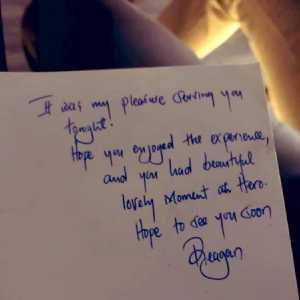 It was my pleasure serving you
tonight!
Hope you enjoyed the experience,
and you had beautiful
lovely moment at Hero.
Hope to see you soon